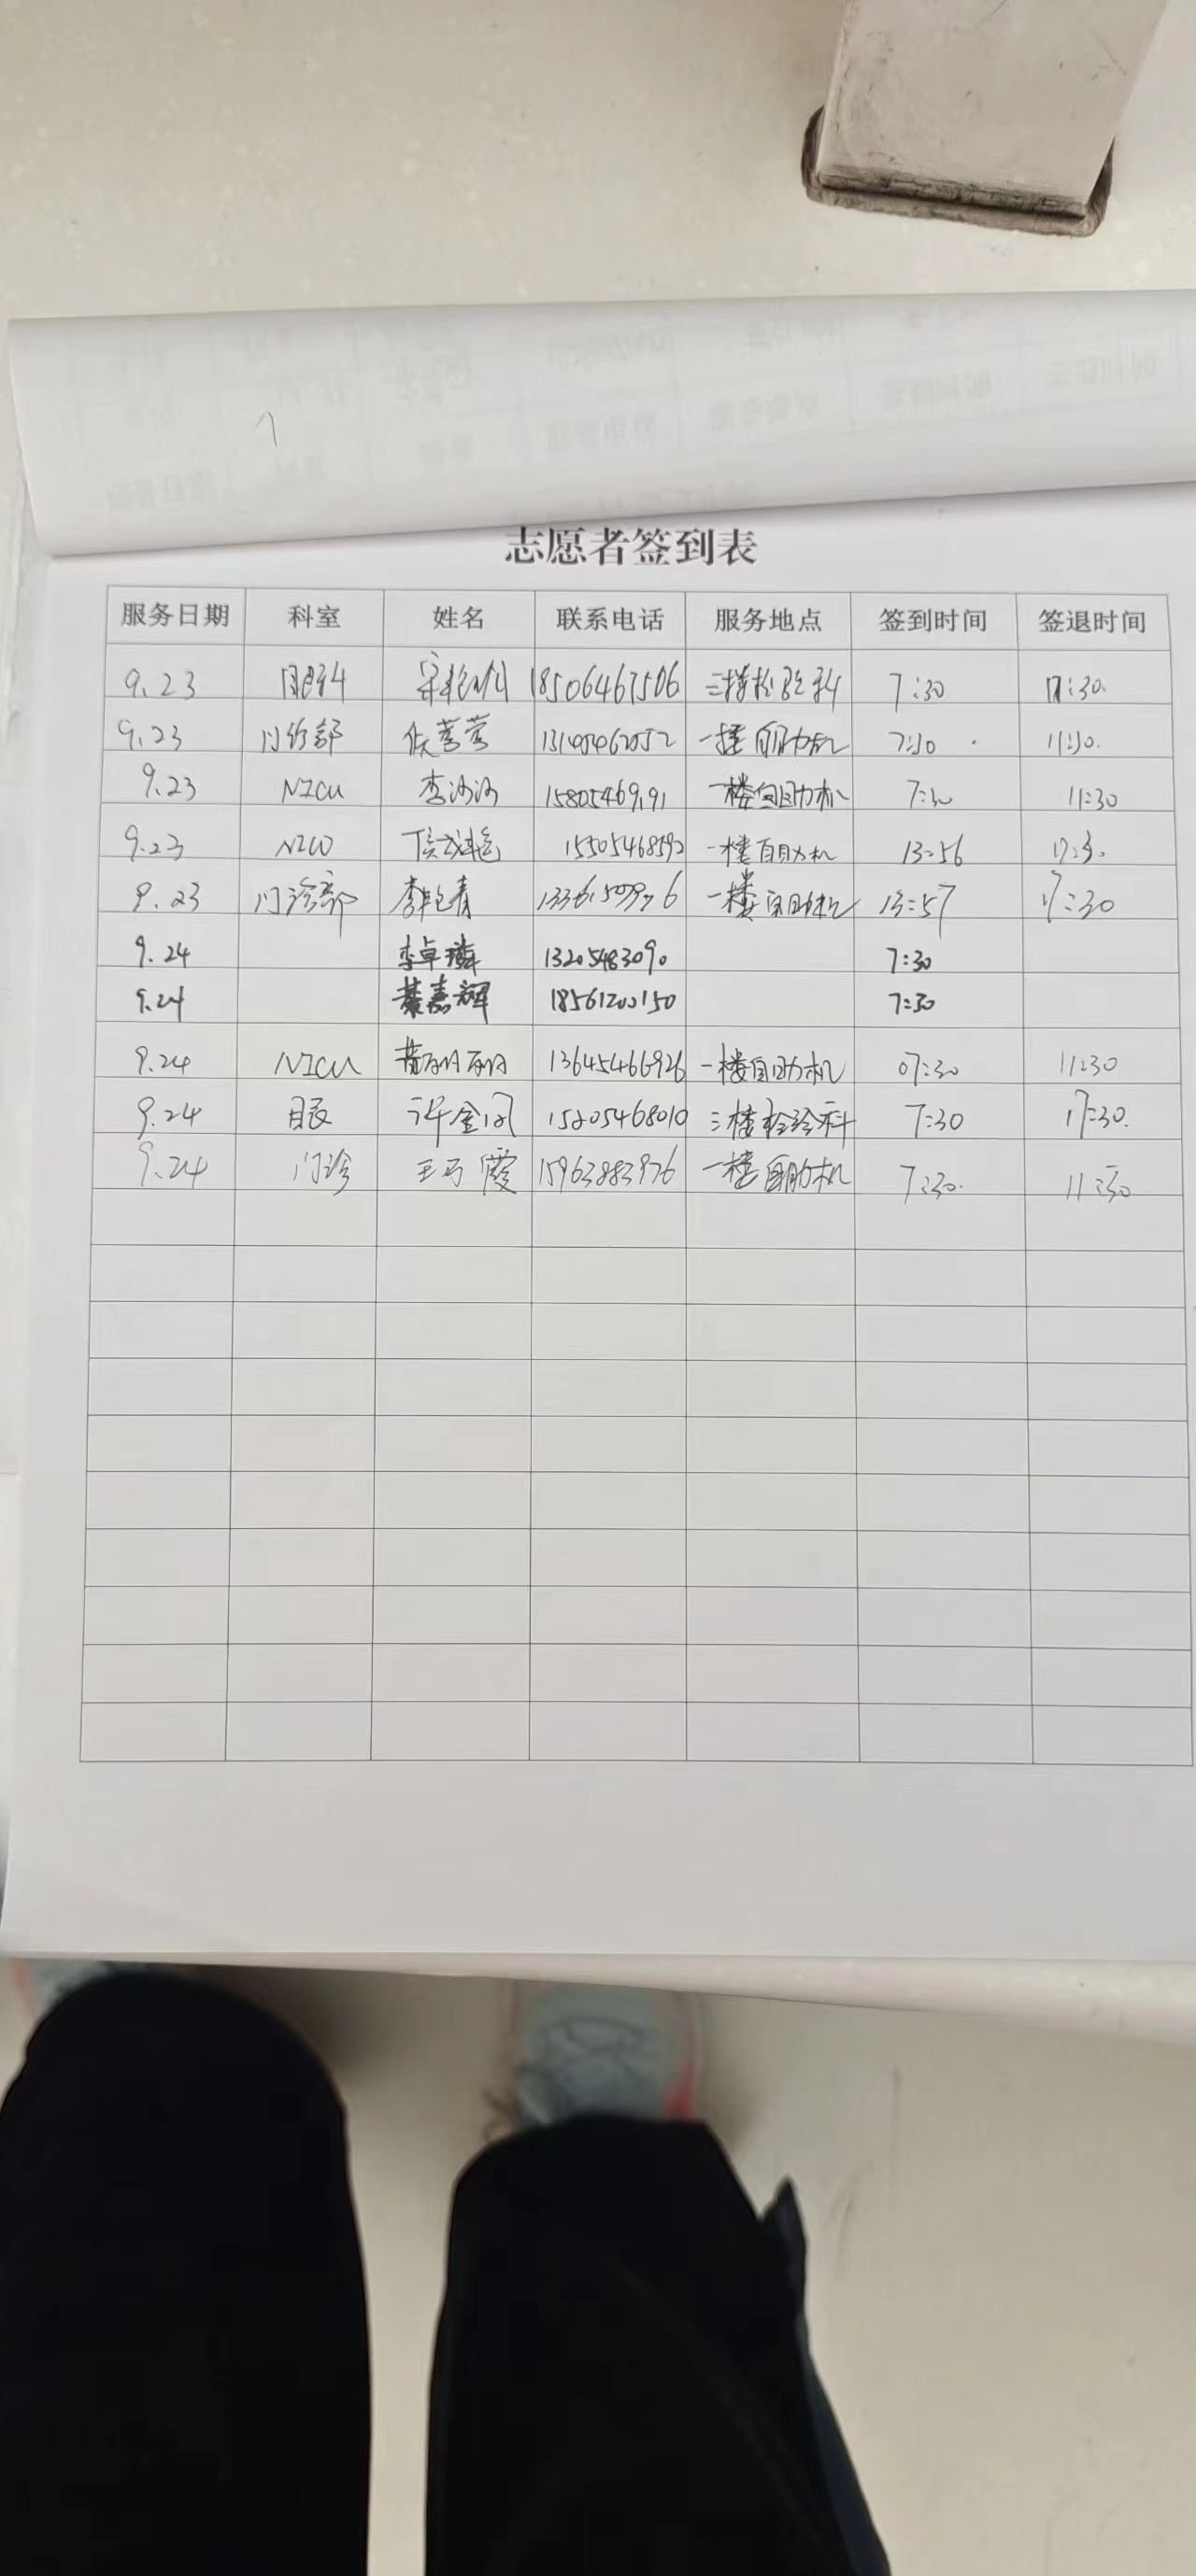 志愿者签到表
服务日期 科室 姓名 联系电话 服务地点 签到时间 签退时间
9.23 眼科 18506467506 三楼检验科 7:30 17:30
9.23 门诊部 侯营营 一楼自助机 7:30 11:30
9.23 NICU 李汝汝 一楼自助机 7:30 11:30
9.23 NICU 一楼自助机 13:56 17:30
9.23 门诊部 李艳青 一楼自助机 13:57 17:30
9.24 李卓璘 13205483090 7:30
9.24 綦嘉辉 18561200150 7:30
9.24 NICU 13645466926 一楼自助机 07:30 11:30
9.24 眼 许金凤 15205468010 三楼检验科 7:30 17:30
9.24 门诊 王巧霞 15963883976 一楼自助机 7:30 11:30